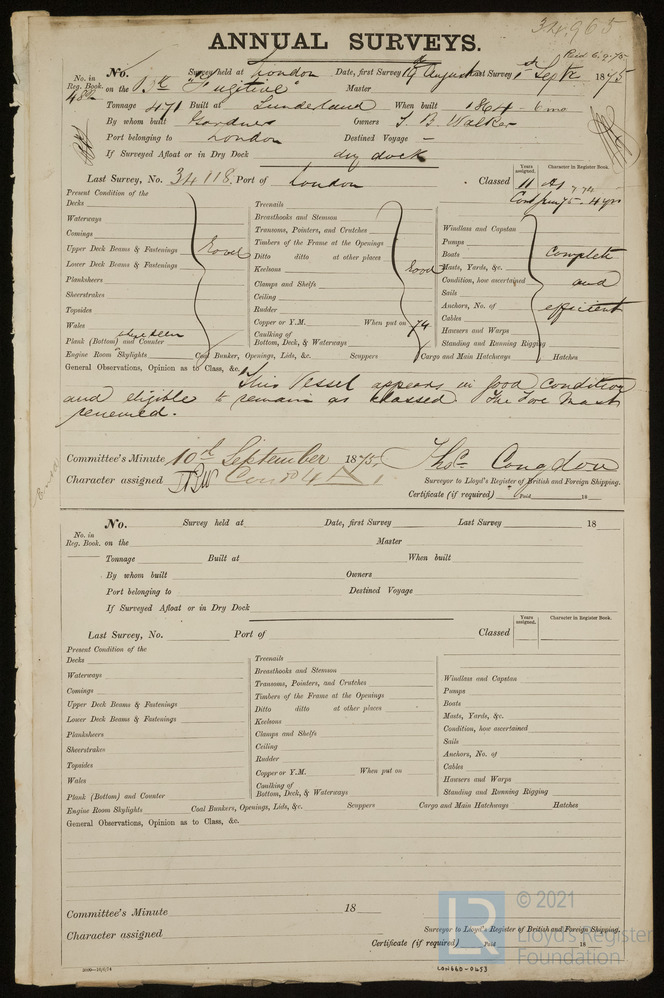 34,965
ANNUAL SURVEYS.
Paid 6.9.75
No. Survey held at London Date, first Survey 19 August Last Survey 1st Septr 1875
No. in Reg. Book. 482 on the Bk "Fugitive" Master
Tonnage 471 Built at Sunderland When built 1864 - 6 mo
By whom built Gardner Owners T. B. Walker
Port belonging to London Destined Voyage -
If Surveyed Afloat or in Dry Dock dry dock
Last Survey, No. 34118, Port of London Classed Years assigned. 11 Character in Register Book. A1
Present Condition of the
Decks
Waterways
Comings
Upper Deck Beams & Fastenings
Lower Deck Beams & Fastenings
Planksheers
Sheerstrakes
Topsides
Wales
Plank (Bottom) and Counter
Good
Treenails
Breasthooks and Stemson
Transoms, Pointers, and Crutches
Timbers of the Frame at the Openings
Ditto ditto at other places
Keelsons
Clamps and Shelfs
Ceiling
Rudder
Copper or Y.M. When put on 74
Caulking of Bottom, Deck, & Waterways
Good
Windlass and Capstan
Pumps
Boats
Masts, Yards, &c.
Condition, how ascertained
Sails
Anchors, No. of
Cables
Hawsers and Warps
Standing and Running Rigging
Complete and efficient
Engine Room Skylights Coal Bunker, Openings, Lids, &c. Scuppers Cargo and Main Hatchways Hatches
General Observations, Opinion as to Class, &c. This Vessel appears in good condition
and eligible to remain as classed The Fore Mast
renewed.
Committee's Minute 10th September 1875, Thos. Congdon
Character assigned Contd 4 A 1 Surveyor to Lloyd's Register of British and Foreign Shipping.
Certificate (if required) Paid 18
No. Survey held at Date, first Survey Last Survey 18
No. in Reg. Book. on the Master
Tonnage Built at When built
By whom built Owners
Port belonging to Destined Voyage
If Surveyed Afloat or in Dry Dock
Last Survey, No. Port of Classed Years assigned. Character in Register Book.
Present Condition of the
Decks
Waterways
Comings
Upper Deck Beams & Fastenings
Lower Deck Beams & Fastenings
Planksheers
Sheerstrakes
Topsides
Wales
Plank (Bottom) and Counter
Treenails
Breasthooks and Stemson
Transoms, Pointers, and Crutches
Timbers of the Frame at the Openings
Ditto ditto at other places
Keelsons
Clamps and Shelfs
Ceiling
Rudder
Copper or Y.M. When put on
Caulking of Bottom, Deck, & Waterways
Windlass and Capstan
Pumps
Boats
Masts, Yards, &c.
Condition, how ascertained
Sails
Anchors, No. of
Cables
Hawsers and Warps
Standing and Running Rigging
Engine Room Skylights Coal Bunkers, Openings, Lids, &c. Scuppers Cargo and Main Hatchways Hatches
General Observations, Opinion as to Class, &c.
Committee's Minute 18
Character assigned Surveyor to Lloyd's Register of British and Foreign Shipping.
Certificate (if required) Paid 18
LON660-0653
LR © 2021
Lloyd's Register
Foundation